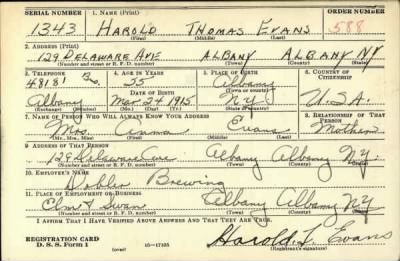 SERIAL NUMBER 1. NAME (Print) ORDER NUMBER
1343 HAROLD THOMAS EVANS 588
(First) (Middle) (Last)
2. ADDRESS (Print)
129 DELAWARE AVE ALBANY ALBANY NY
(Number and street or R. F. D. number) (Town) (County) (State)
3. TELEPHONE 4. AGE IN YEARS 5. PLACE OF BIRTH 6. COUNTRY OF CITIZENSHIP
48181 25 Albany
DATE OF BIRTH (Town or county)
Albany Mar 24 1915 NY U.S.A.
(Exchange) (Number) (Mo.) (Day) (Yr.) (State or country)
7. NAME OF PERSON WHO WILL ALWAYS KNOW YOUR ADDRESS 8. RELATIONSHIP OF THAT PERSON
Mrs. Anna Evans Mother
(Mr., Mrs., Miss) (First) (Middle) (Last)
9. ADDRESS OF THAT PERSON
129 Delaware Ave Albany Albany N.Y.
(Number and street or R. F. D. number) (Town) (County) (State)
10. EMPLOYER'S NAME
Dobler Brewing
11. PLACE OF EMPLOYMENT OR BUSINESS
Elm & Swan Albany Albany NY
(Number and street or R. F. D. number) (Town) (County) (State)
I AFFIRM THAT I HAVE VERIFIED ABOVE ANSWERS AND THAT THEY ARE TRUE.
REGISTRATION CARD
D. S. S. Form 1 (over) 16—17105 Harold T. Evans
(Registrant's signature)